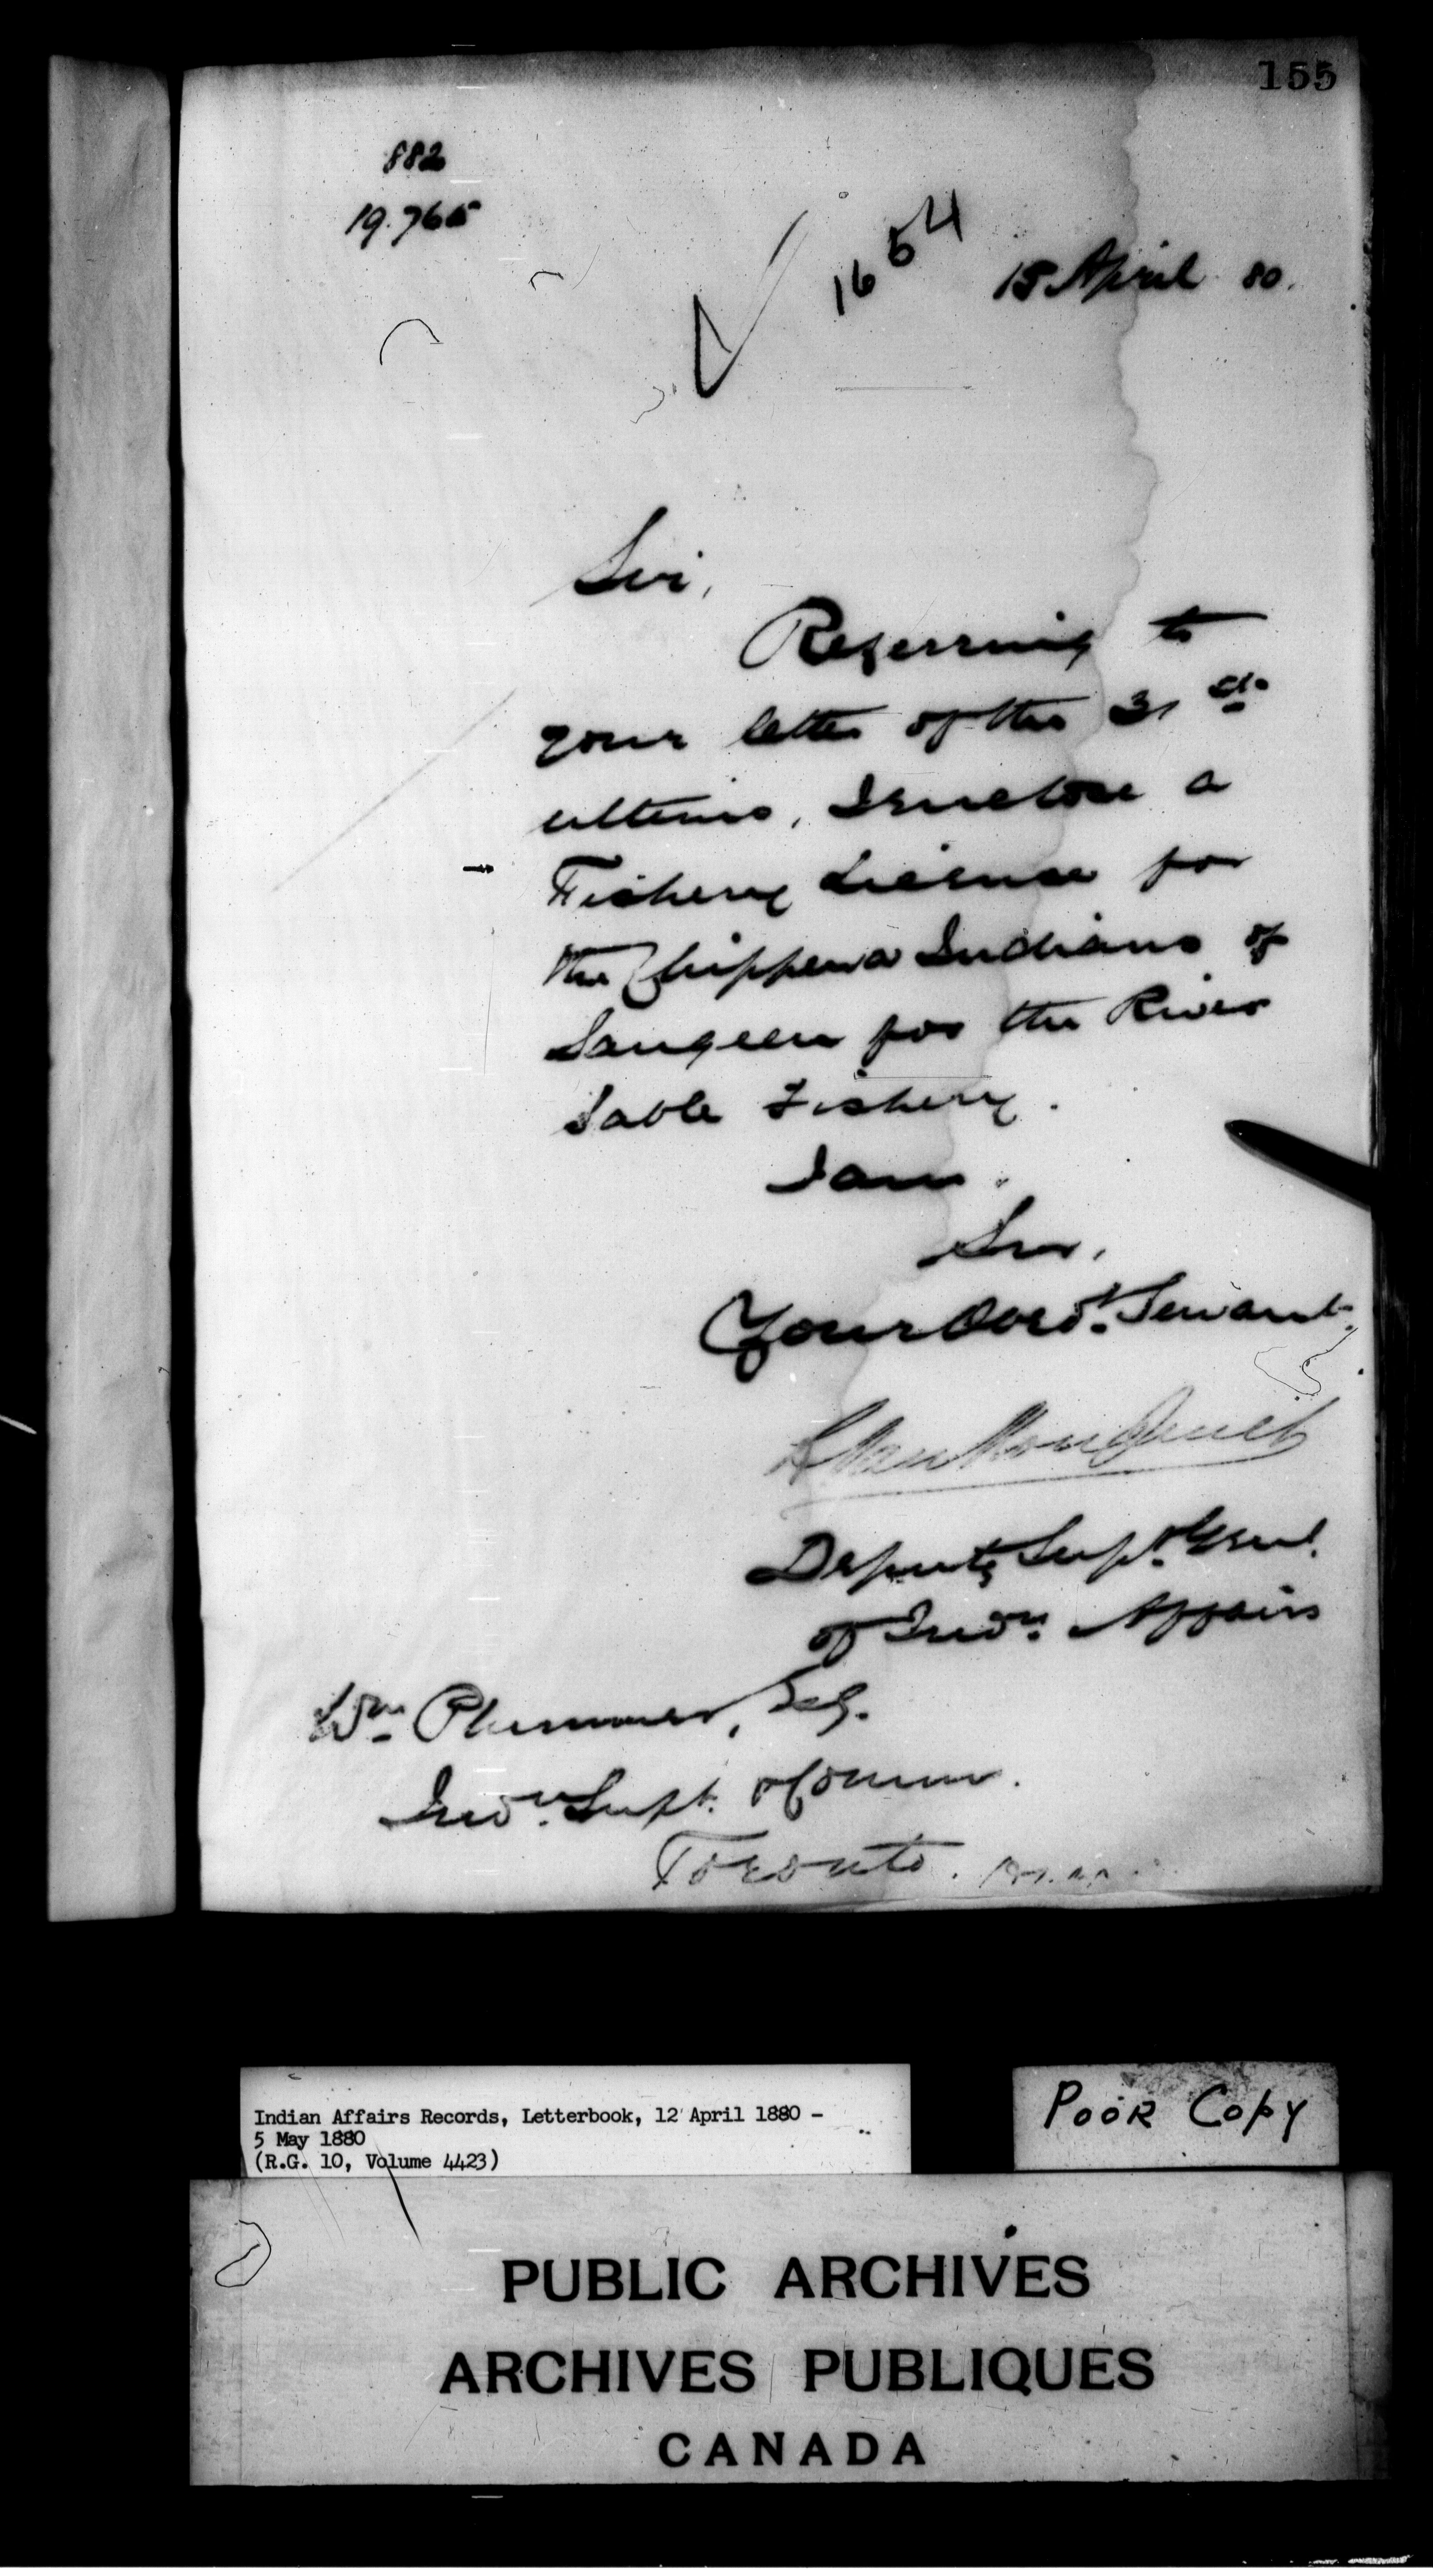 155
882
19.765
1654
15 April 80.
Sir,
Referring to
your letter of the 31st
ultimo, I enclose a
Fishery License for
the Chippewa Indians of
Saugeen for the River
Sable Fishery.
I am.
Sir,
Your Obedt. Servant.
L VanKoughnet
Deputy Supt. Genl.
of Indn. Affairs
Wm Plummer, Esq.
Indn. Supt. & Commr.
Toronto.
Indian Affairs Records, Letterbook, 12 April 1880 -
5 May 1880
(R.G. 10, Volume 4423)
POOR COPY
PUBLIC ARCHIVES
ARCHIVES PUBLIQUES
CANADA